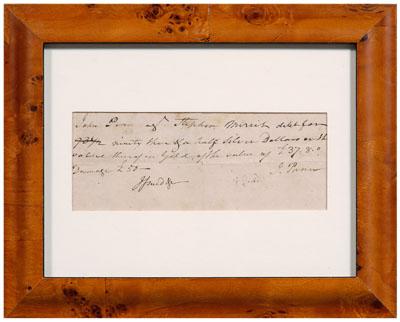 John Penn agt Stephen Merrit debt for
ninety three & a half Silver Dollars or the
value thereof in Gold, of the value of £37.8.0
Damage £50
J. Penn